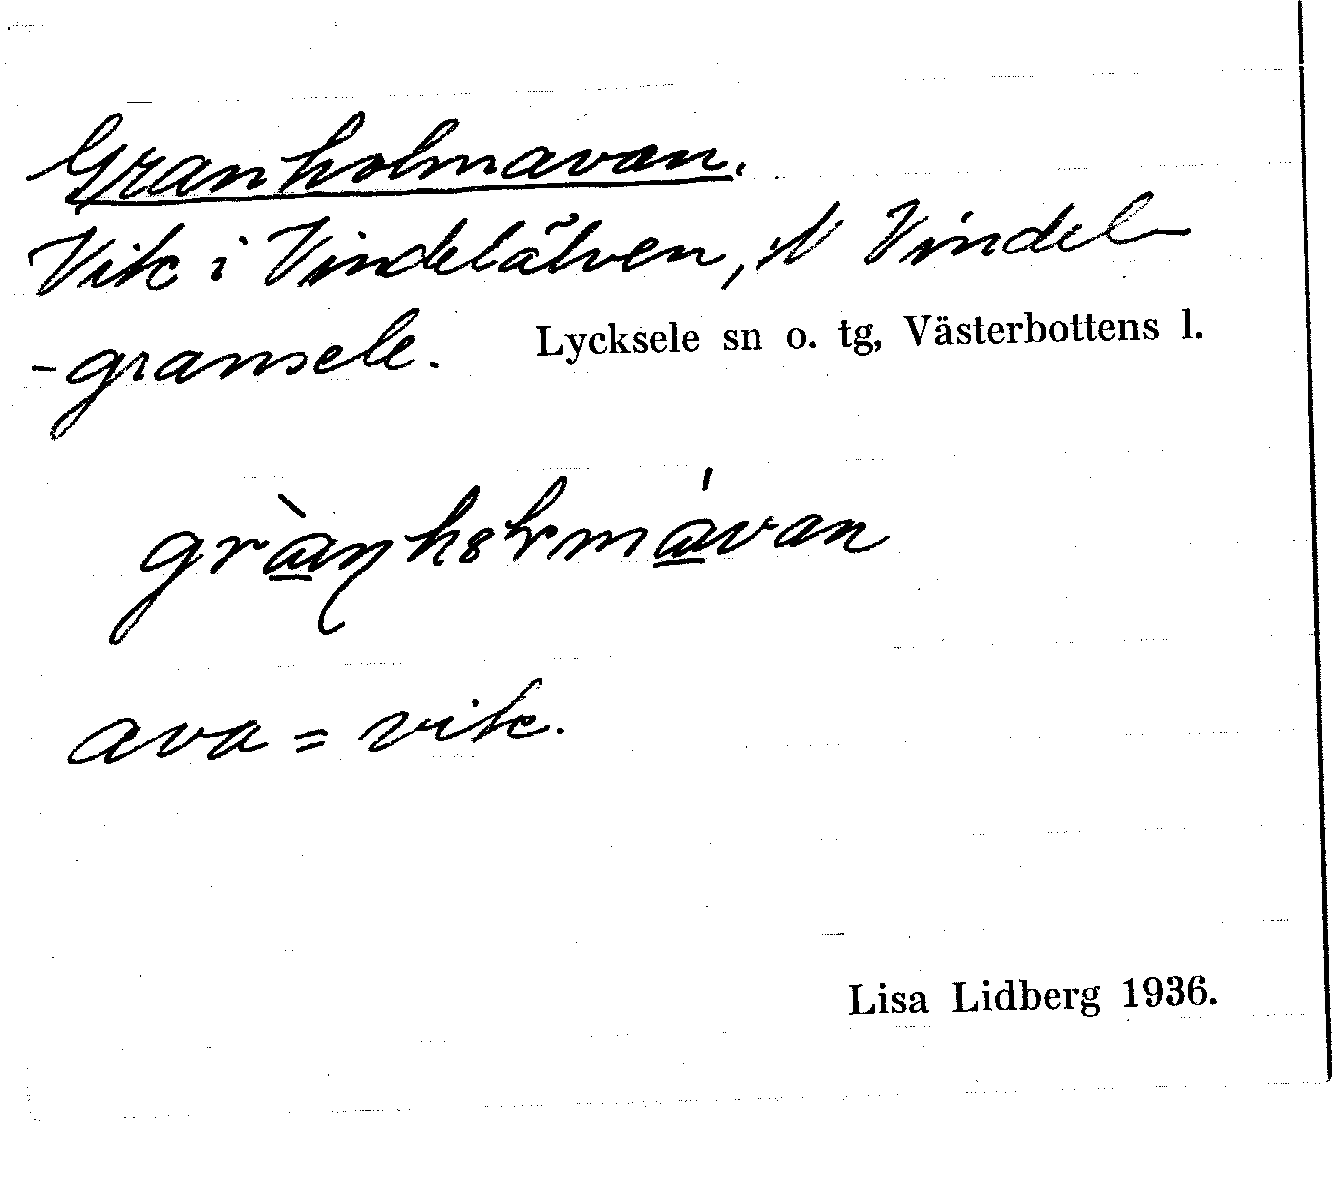 Granholmavan.
Vik i Vindelälven, N Vindel-
-gransele. Lycksele sn o. tg, Västerbottens l.
ava = vik.
Lisa Lidberg 1936.